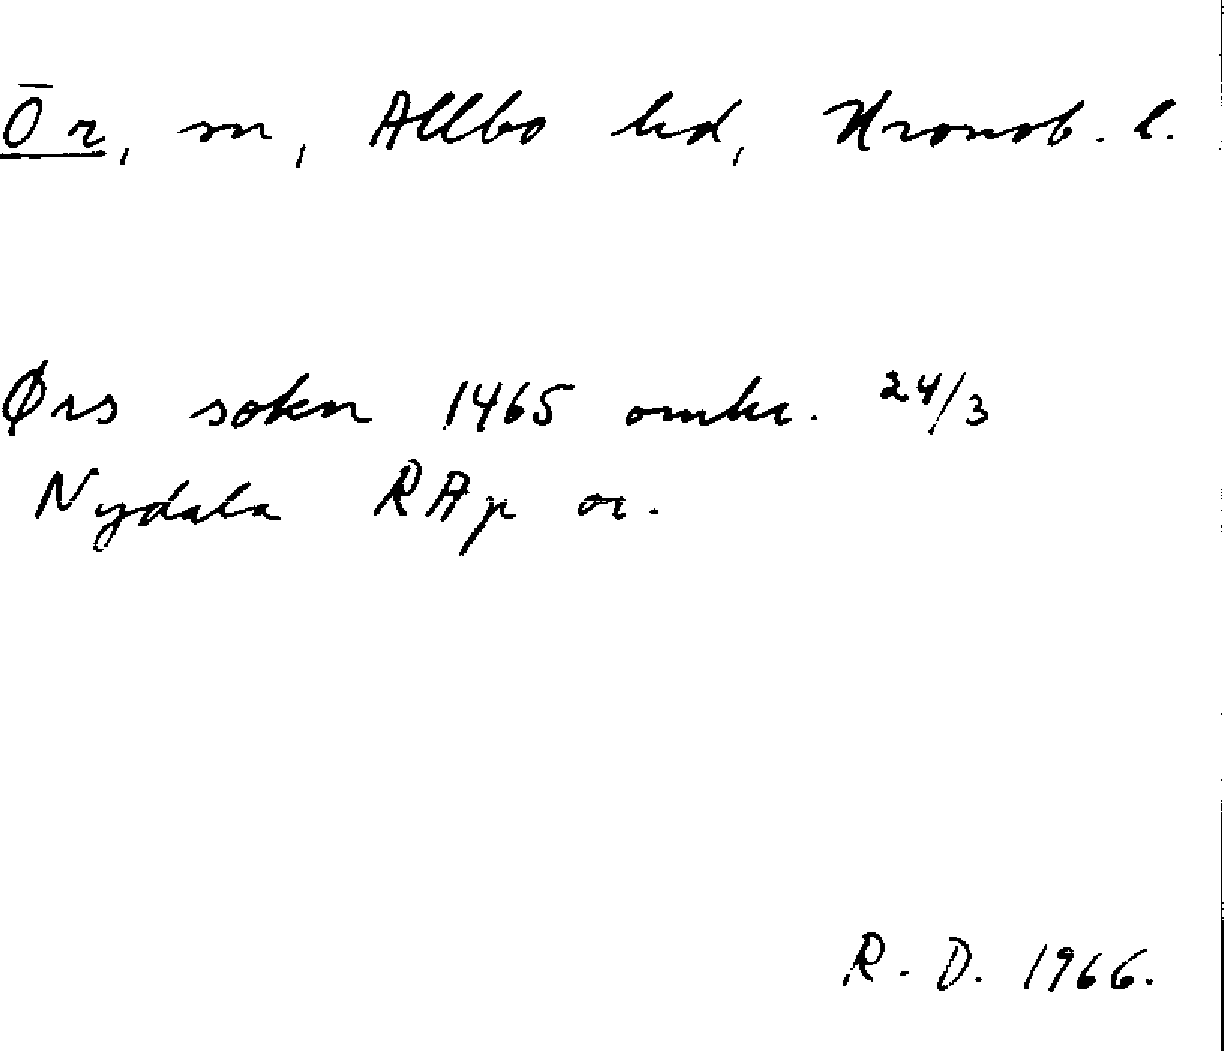 Ör, sn, Allbo hd, Kronob. l.
Ørs sokn 1465 omkr. 24/3
Nydala RAp or.
R. D. 1966.